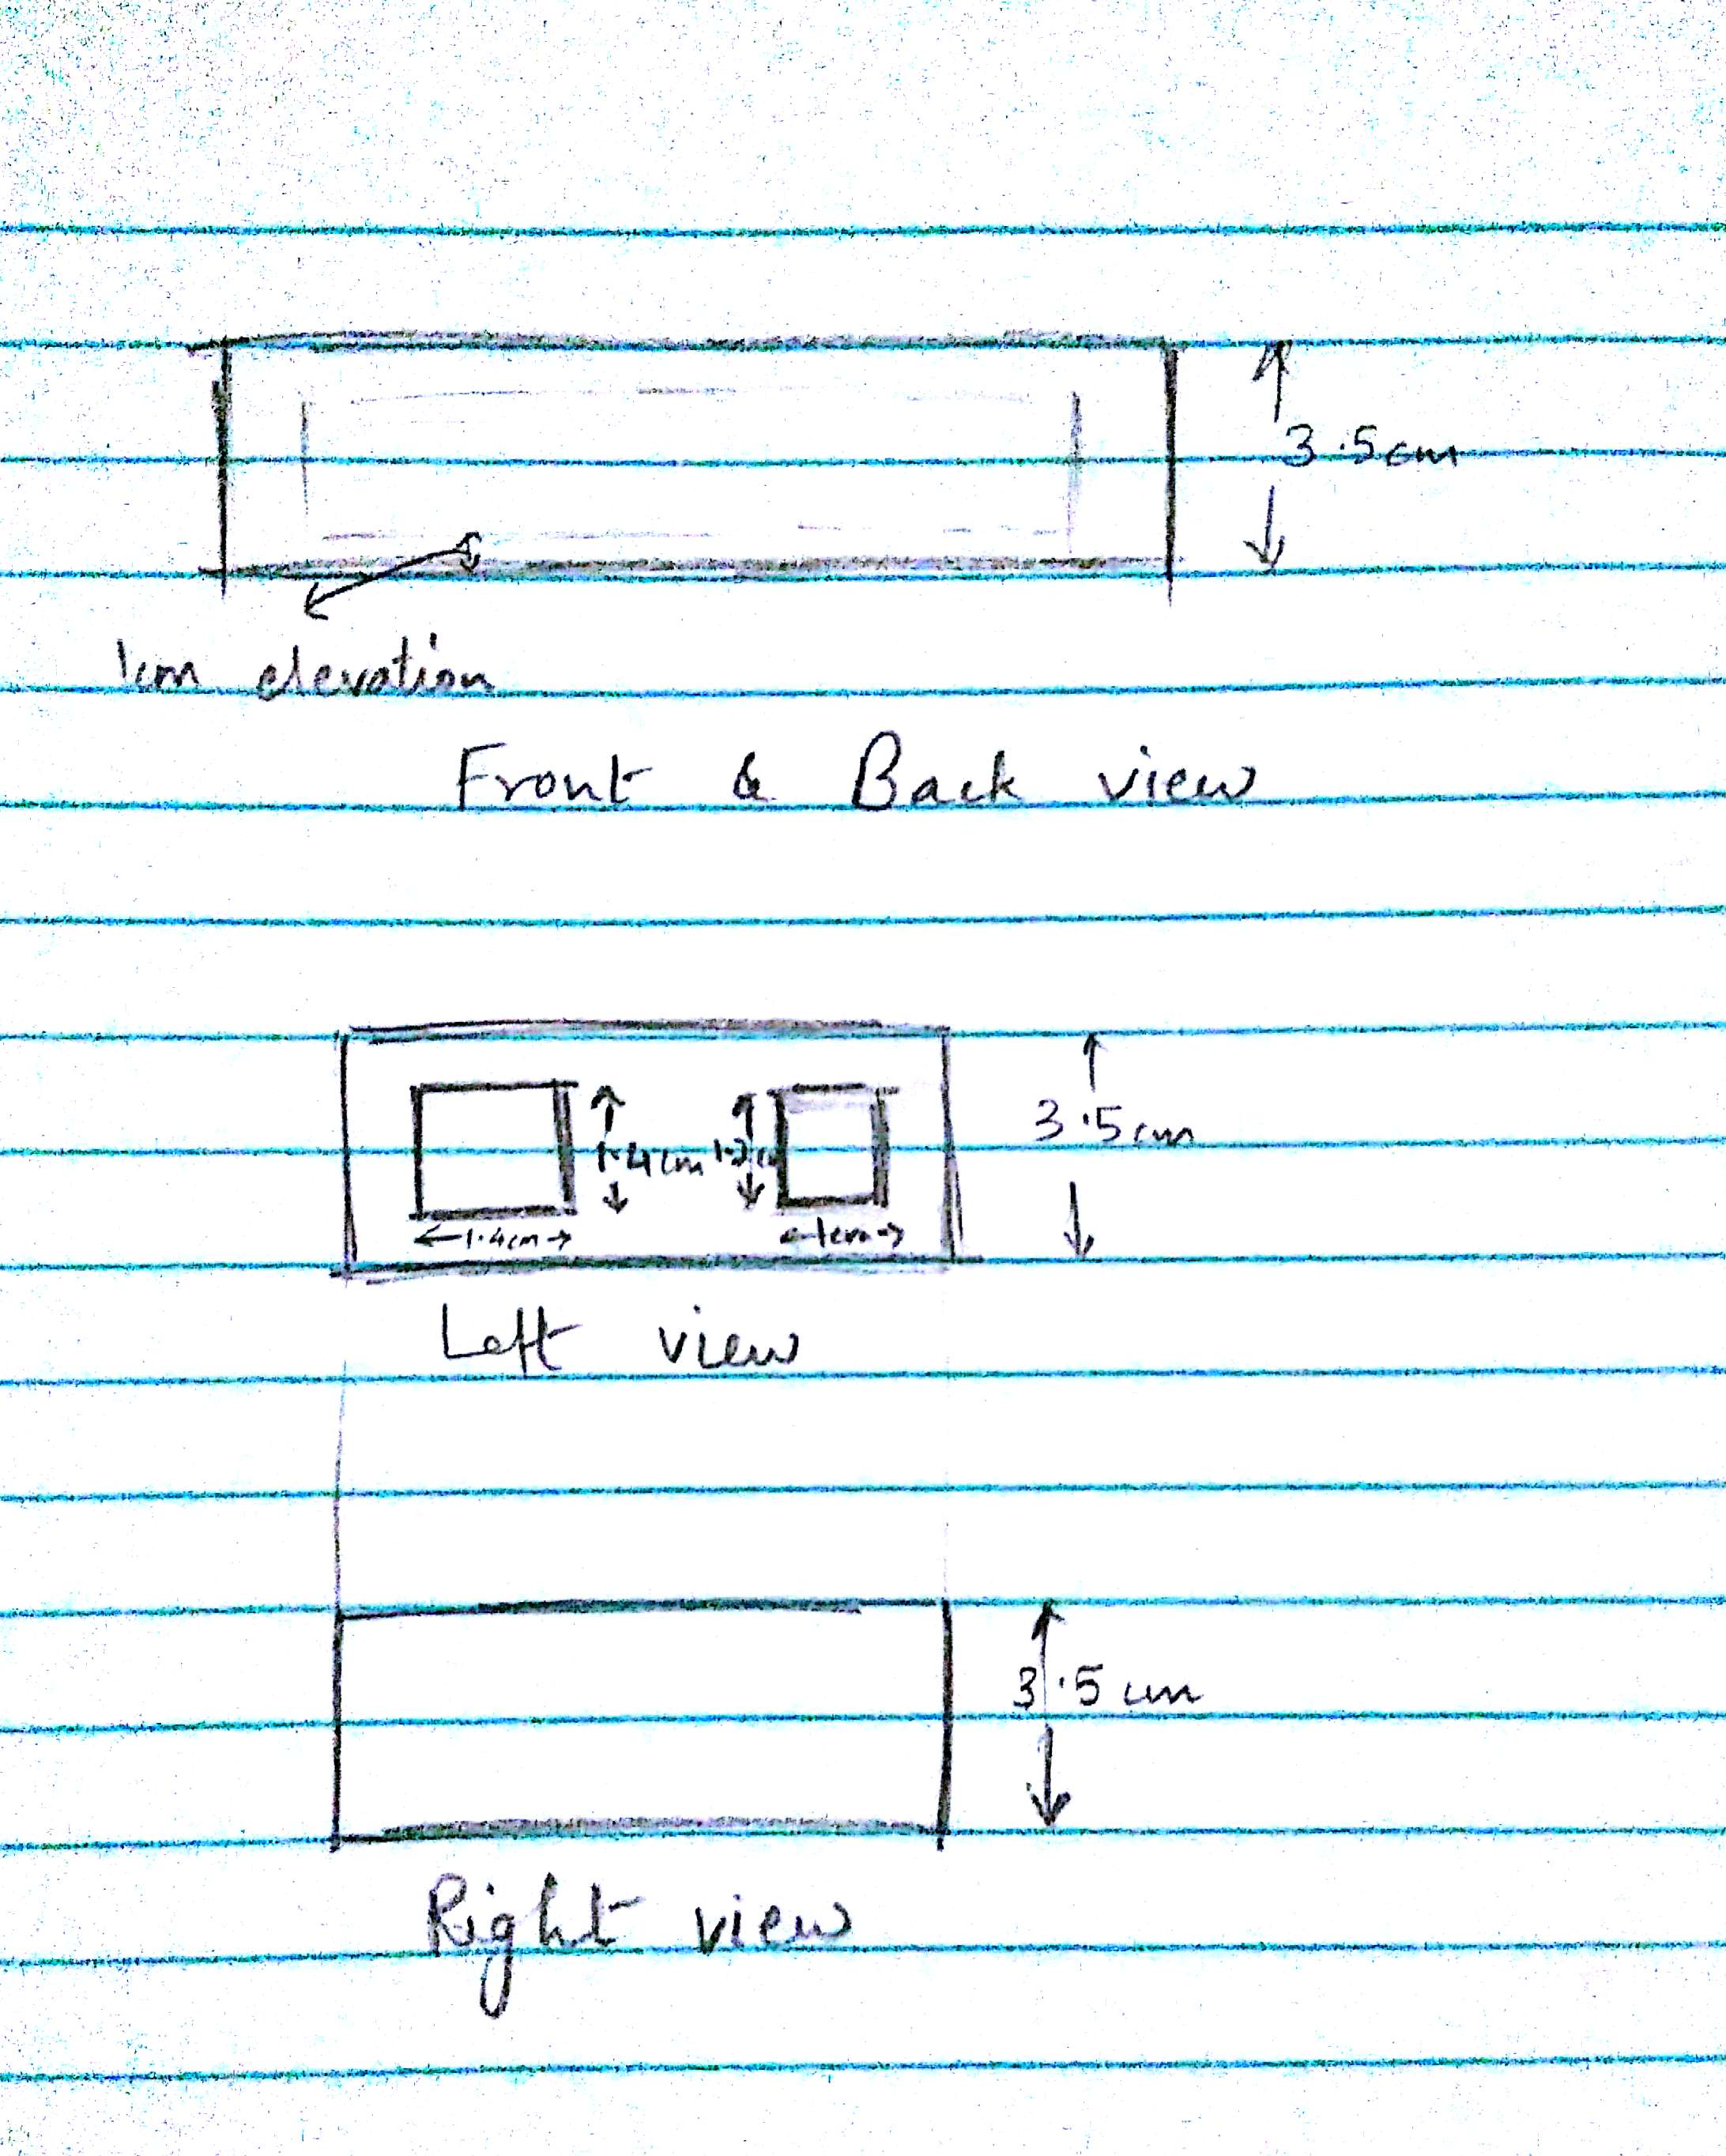 3.5cm
1cm elevation
Front & Back view
3.5cm
1.4cm
1.4cm
1cm
Left view
3.5cm
Right view